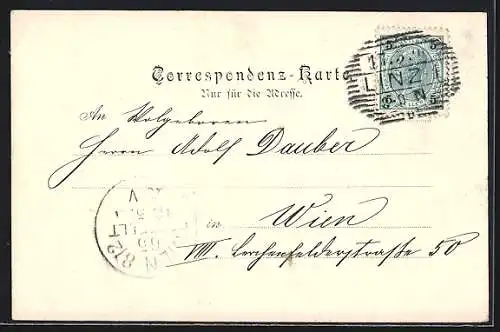 Correspondenz-Karte
Nur für die Adresse.
5 5
LINZ
5 5
An Wolgeboren
Herrn Adolf Dauber
in Wien
VIII. Lerchenfelderstraße 50
WIEN
8/2